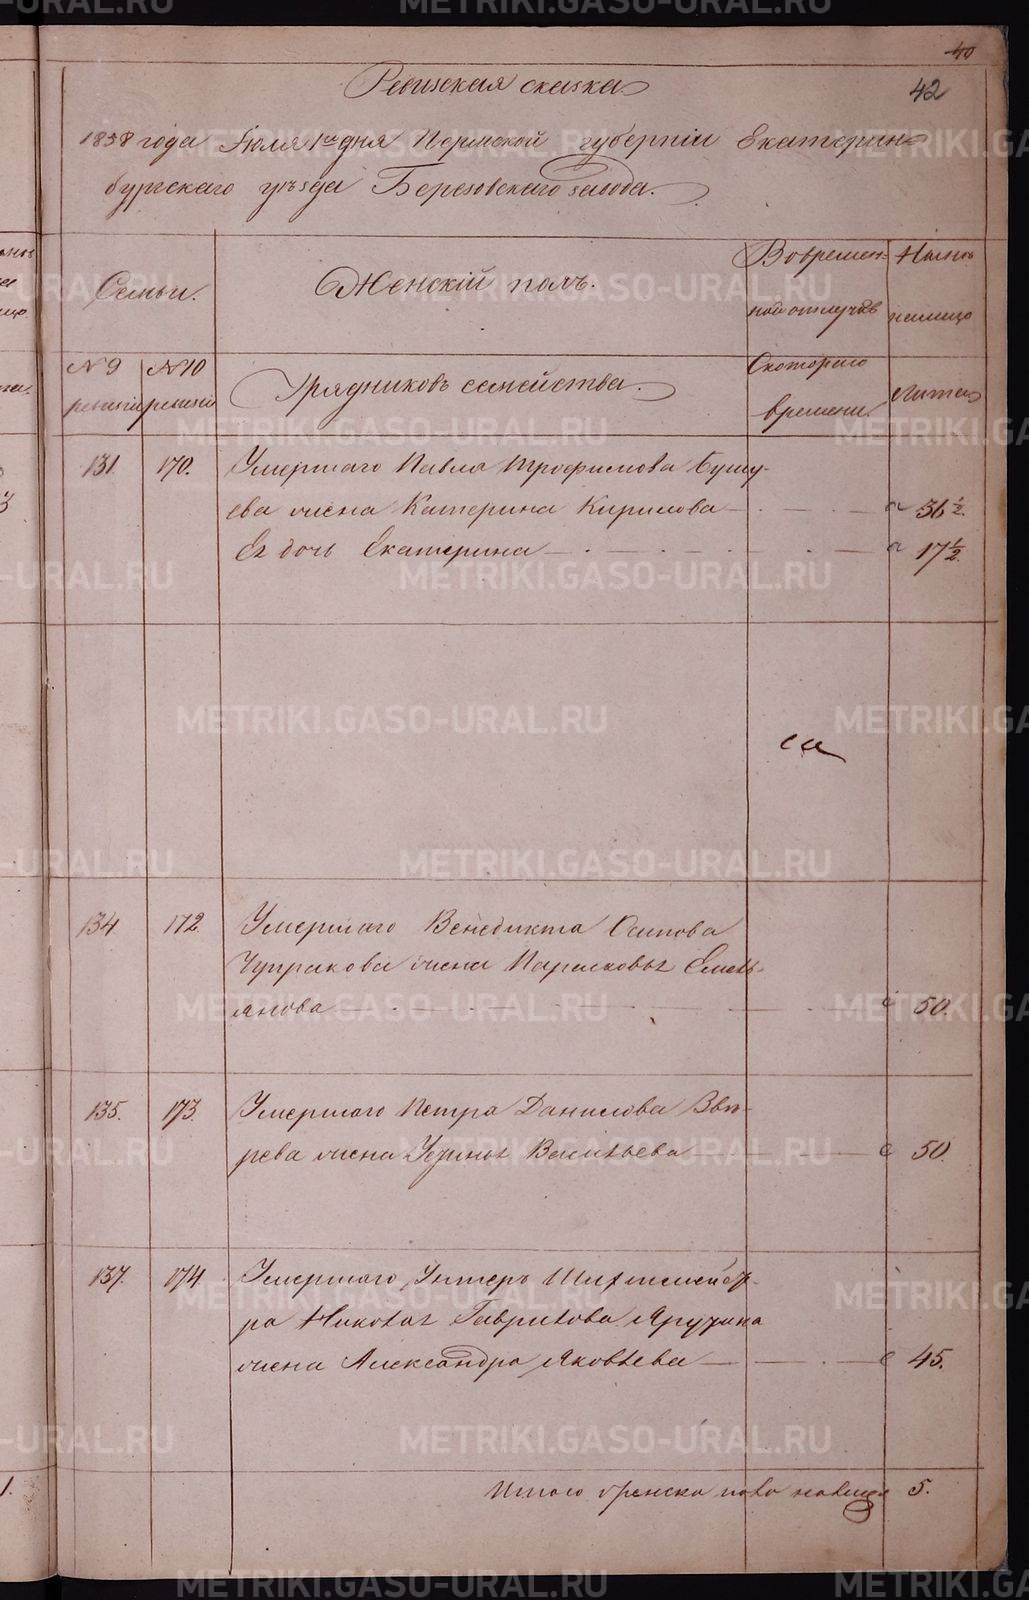 40
42
Ревизская сказка
1858 года Июля 1го дня Пермской губерніи Екатерин-
бургскаго уѣзда Березовскаго завода.
Семьи.
Женскій полъ.
Во времен-
ной отлучкѣ
налицо
№ 9 ревизіи
№ 10 ревизіи
Урядниковъ семейства.
Скотораго
времени.
Лѣта
131. 170. Умершаго Павла Трофимова Бушу-
ева жена Катерина Кирилова 36 1/2.
Ея дочь Екатерина 17 1/2.
134 172. Умершаго Венедикта Осипова
Чупракова жена Парасковья Емель-
янова 50.
135. 173. Умершаго Петра Данилова Звѣ-
рева жена Устинья Васильева 50.
137. 174. Умершаго Унтеръ Шихтмейсте-
ра Николая Гаврилова Яругина
жена Александра Яковлева 45.
Итого женска пола налицо 5.
METRIKI.GASO-URAL.RU